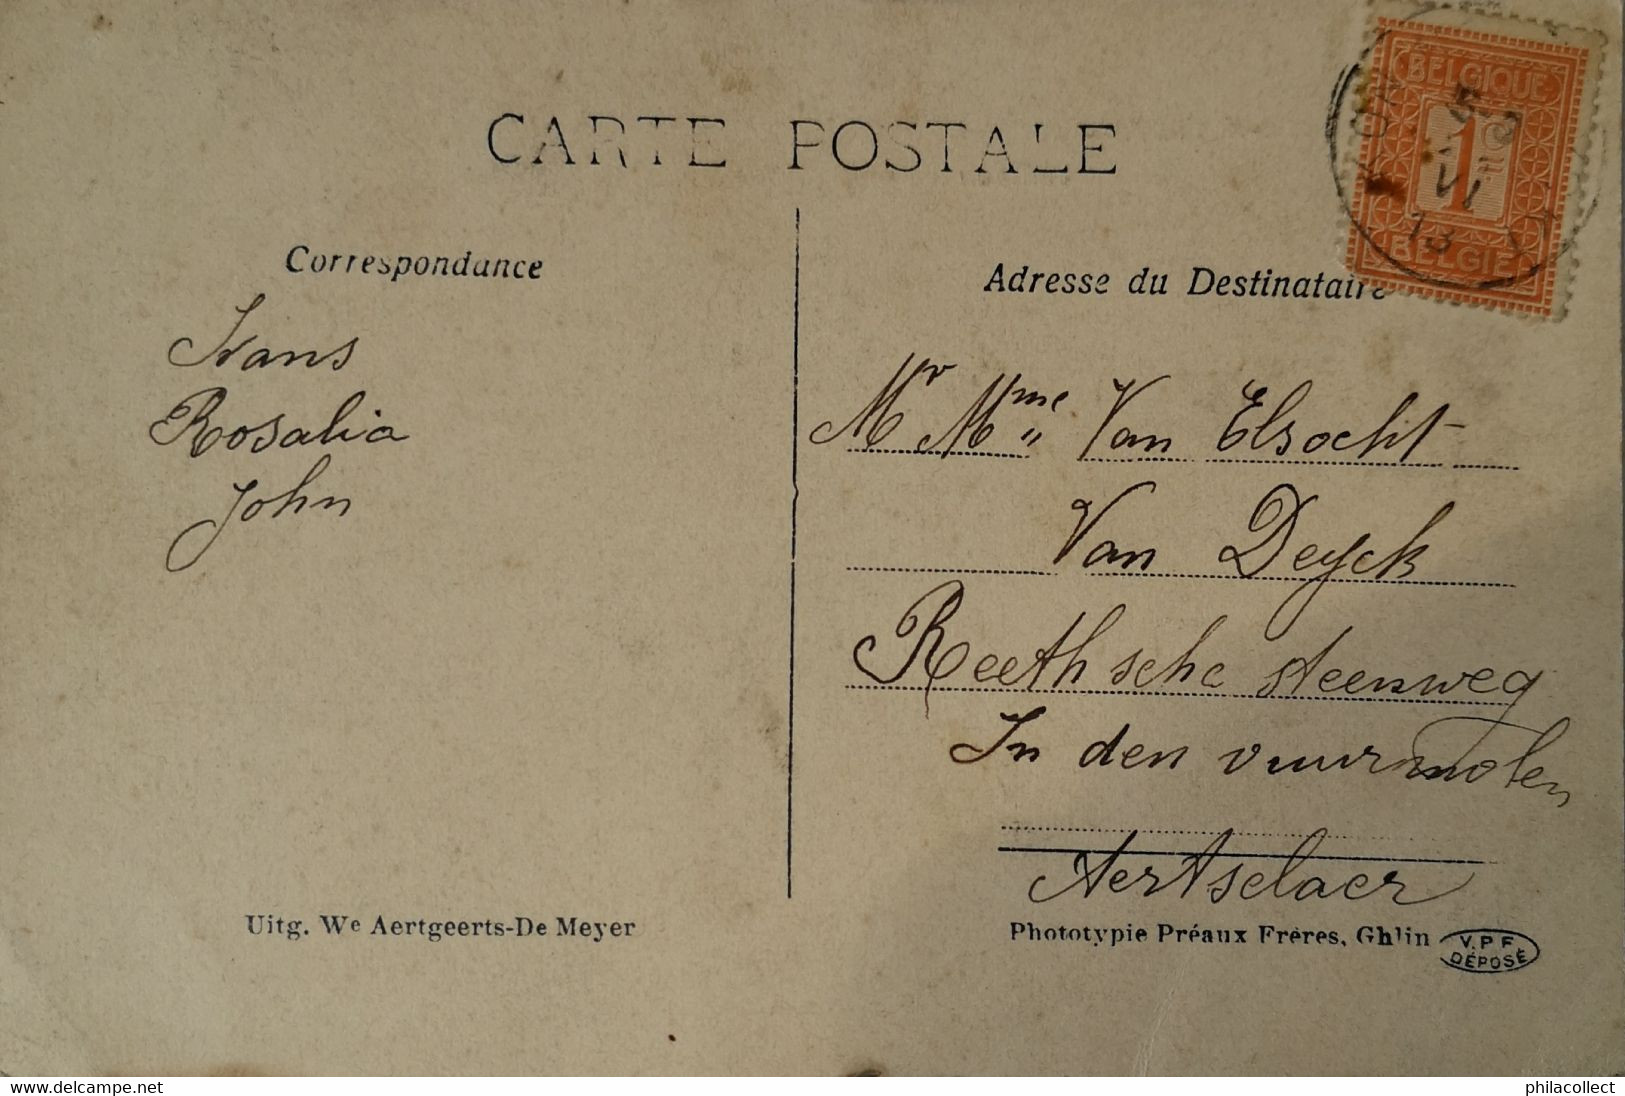 CARTE POSTALE
BELGIQUE
1
VI
13
BELGIE
Correspondance
Adresse du Destinataire
Ivans
Rosalia
John
Mr Mme Van Elsocht
Van Deyck
Reethsche steenweg
In den vuurmolen
Aertselaer
Uitg. We Aertgeerts-De Meyer
Phototypie Préaux Frères, Ghlin
V.P.F.
DÉPOSÉ
www.delcampe.net
philacollect